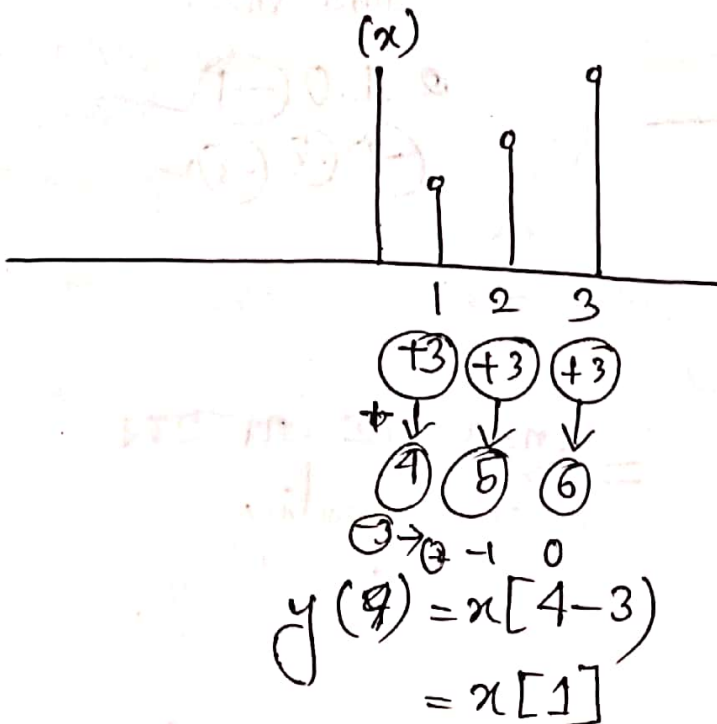 (x)
1 2 3
+3 +3 +3
4 5 6
-3 → -1 0
y(4) = x[4-3)
= x[1]